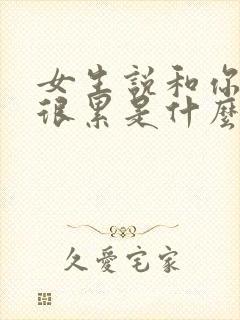 女生說和你
很累是什麼
久愛宅家